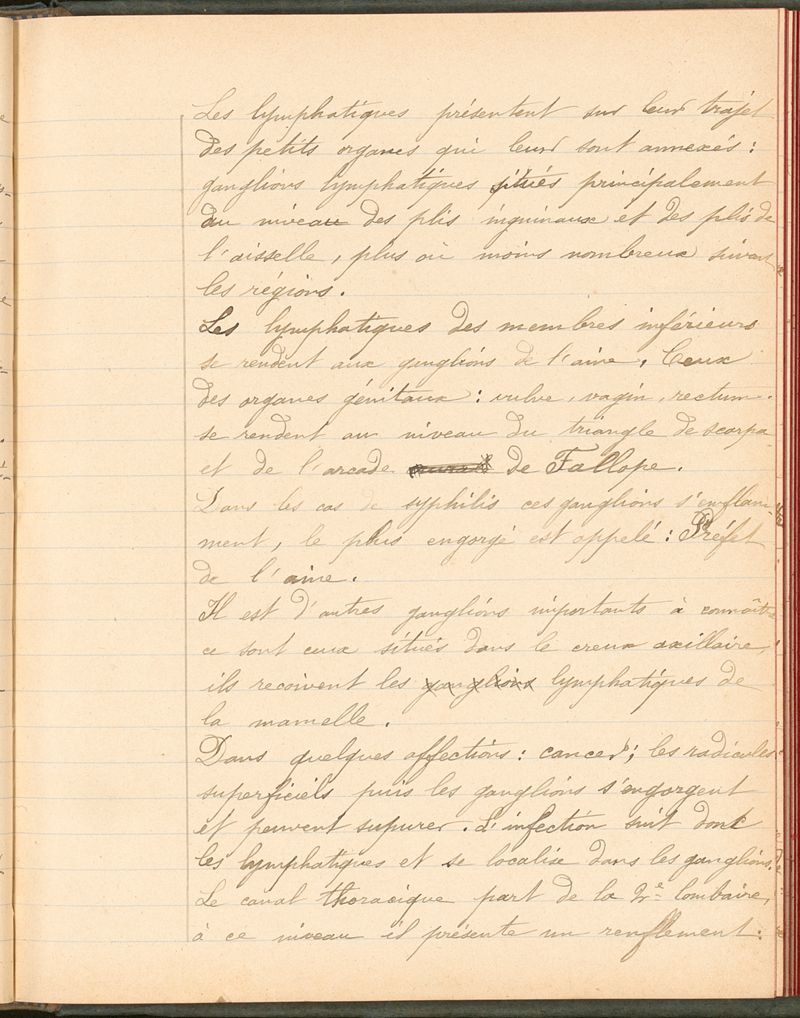 Les lymphatiques présentent sur leur trajet
des petits organes qui leur sont annexés :
ganglions lymphatiques situés principalement
au niveau des plis inguinaux et des plis de
l'aisselle, plus ou moins nombreux suivant
les régions.
Les lymphatiques des membres inférieurs
se rendent aux ganglions de l'aine. Ceux
des organes génitaux : vulve, vagin, rectum.
se rendent au niveau du triangle de scarpa
et de l'arcade de Fallope.
Dans les cas de syphilis ces ganglions s'enflam-
ment, le plus engorgé est appelé : Préfet
de l'aine.
Il est d'autres ganglions importants à connaître
ce sont ceux situés dans le creux axillaire,
ils recoivent les ganglions lymphatiques de
la mamelle.
Dans quelques affections : cancer, les radicules
superficiels puis les ganglions s'engorgent
et peuvent supurer. L'infection suit donc
les lymphatiques et se localise dans les ganglions.
Le canal thoracique part de la 2e lombaire,
à ce niveau il présente un renflement :